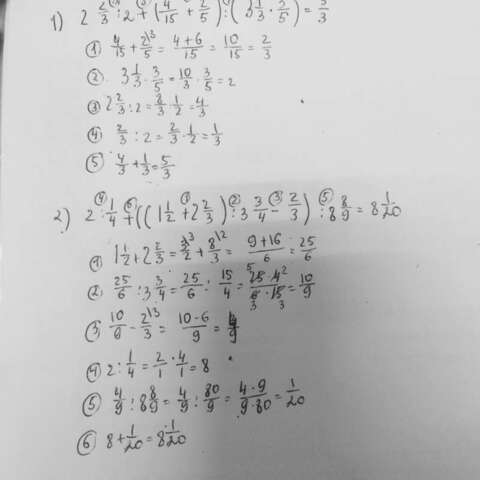 1) 2 2/3 : 2 + (4/15 + 2/5) : (3 1/3 · 3/5) = 5/3
① 4/15 + 2/5 = (4+6)/15 = 10/15 = 2/3
②. 3 1/3 · 3/5 = 10/3 · 3/5 = 2
③ 2 2/3 : 2 = 8/3 · 1/2 = 4/3
④ 2/3 : 2 = 2/3 · 1/2 = 1/3
⑤ 4/3 + 1/3 = 5/3
2) 2 : 1/4 + ((1 1/2 + 2 2/3) : 3 3/4 − 2/3) : 8 8/9 = 8 1/20
① 1 1/2 + 2 2/3 = 3/2 + 8/3 = (9+16)/6 = 25/6
② 25/6 : 3 3/4 = 25/6 : 15/4 = (25·4)/(6·15) = 10/9
③ 10/9 − 2/3 = (10−6)/9 = 4/9
④ 2 : 1/4 = 2/1 · 4/1 = 8
⑤ 4/9 : 8 8/9 = 4/9 : 80/9 = (4·9)/(9·80) = 1/20
⑥ 8 + 1/20 = 8 1/20